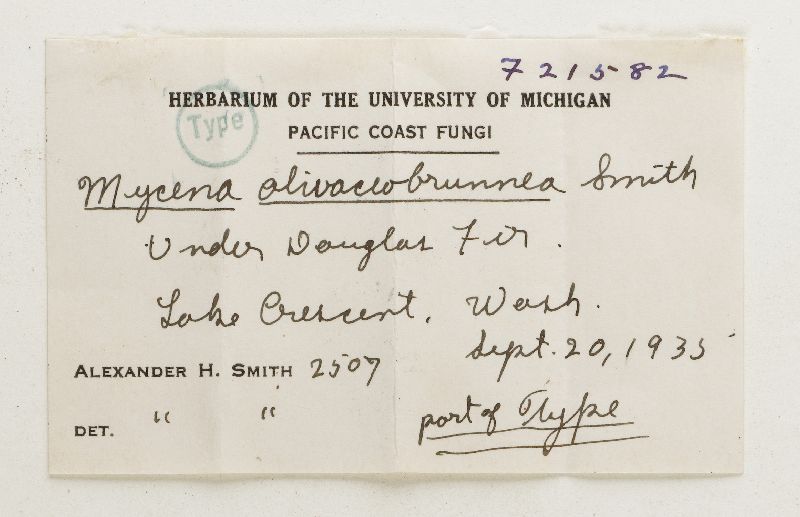 721582
HERBARIUM OF THE UNIVERSITY OF MICHIGAN
Type
PACIFIC COAST FUNGI
Mycena olivaceobrunnea Smith
Under Douglas Fir.
Lake Crescent, Wash.
Sept. 20, 1935
ALEXANDER H. SMITH 2507
DET. " "
part of Type